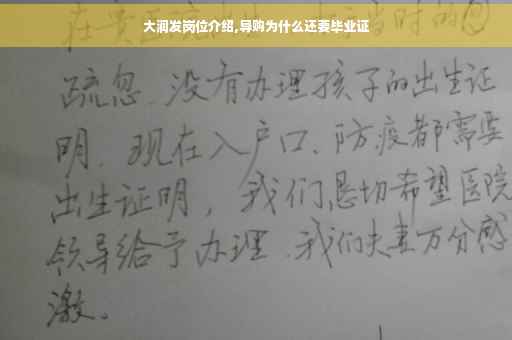 大润发岗位介绍,导购为什么还要毕业证
当时的
疏忽、没有办理孩子的出生证
明、现在入户口、防疫都需要
出生证明，我们恳切希望医院
领导给予办理、我们夫妻万分感
激。